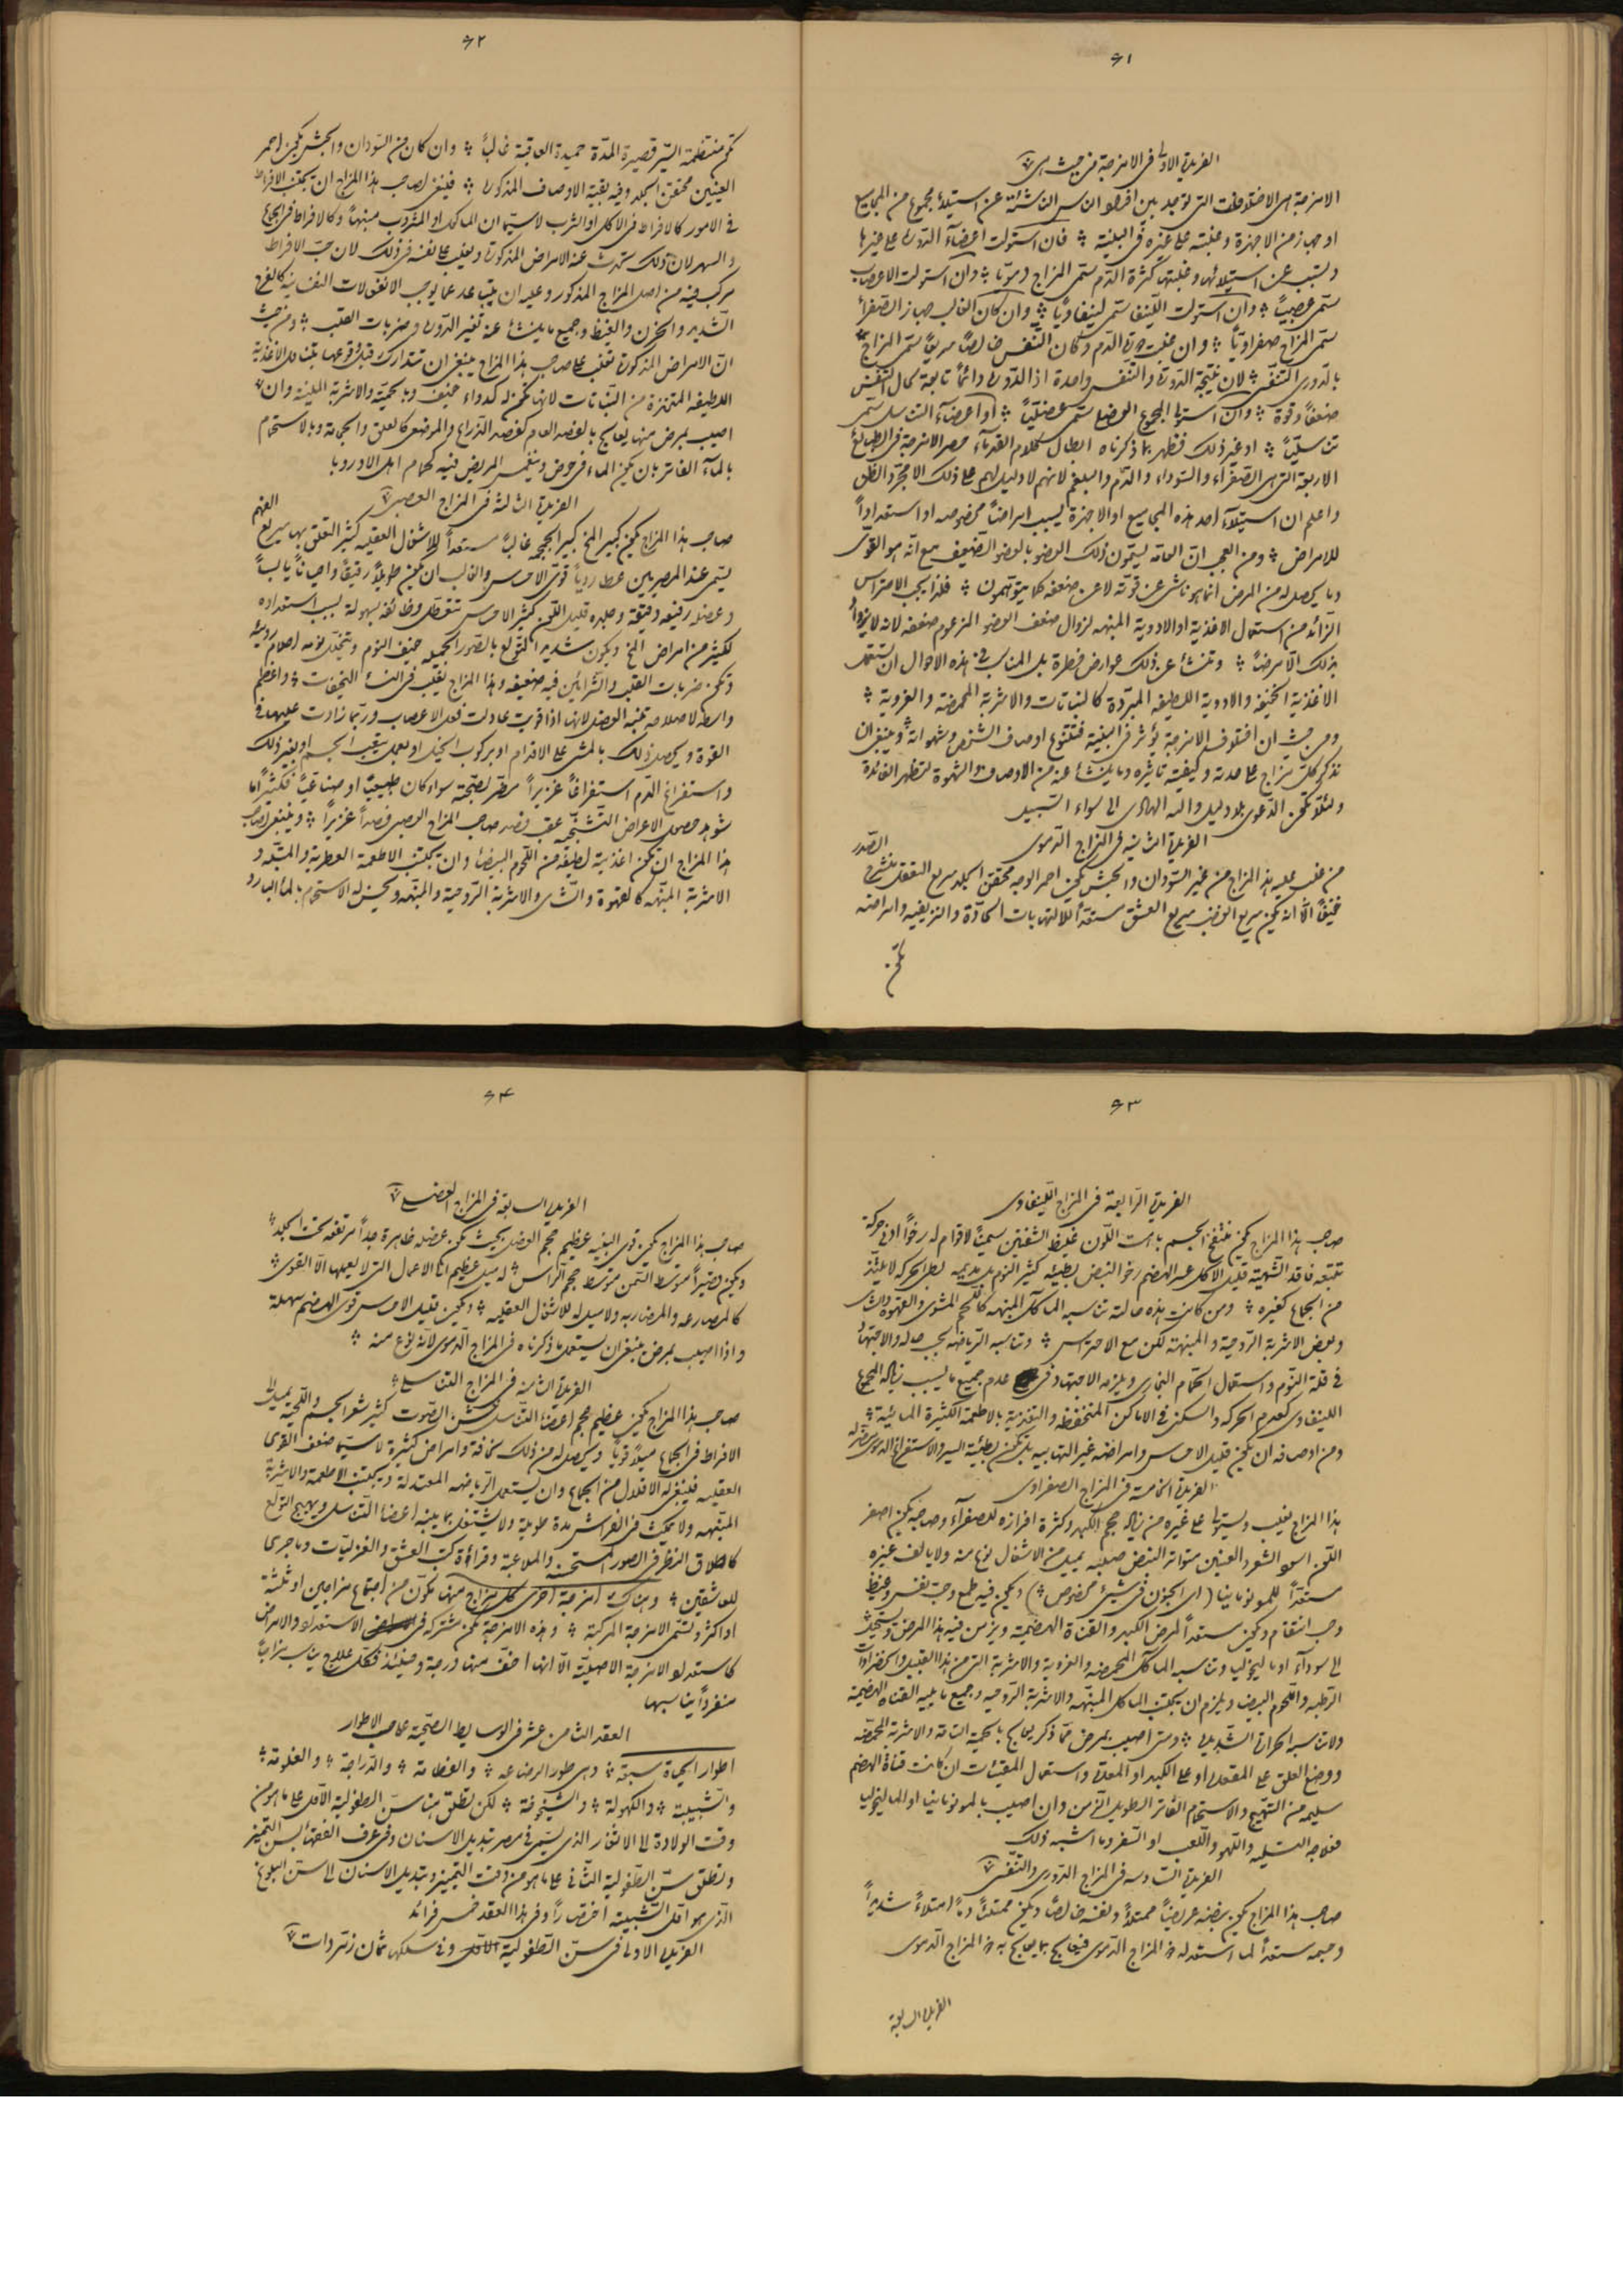 ٦١
الفريدة الاولى فى الامزجة من حيث هى
الامزجة هى الاختلافات التى توجد بين افراد الناس الناشئة عن استيلاء مجموع من المجاميع
او جهاز من الاجهزة وغلبته على غيره فى البنية فان استولت اعضاء الدورة على غيرها
وتسبب عن استيلائها وغلبتها كثرة الدم سمى المزاج دمويا وان استولت الاعصاب
سمى عصبيا وان استولت اللينفا سمى لينفاويا وان كان الغالب جهاز الصفراء
سمى المزاج صفراويا وان غلبت دورة الدم وكان التنفس خالصا سريعا سمى المزاج
بالدورى التنفسى لان نتيجة الدورة والتنفس واحدة اذ الدورة دائما تابعة لحال التنفس
ضعفا وقوة وان استولى المجموع العضلى سمى عضليا او اعضاء التناسل سمى
تناسليا او غير ذلك فظهر بما ذكرناه ابطال كلام القدماء حصر الامزجة فى الطبائع
الاربعة التى هى الصفراء والسوداء والدم والبلغم لانهم لا دليل لهم على ذلك الا مجرد الظن
واعلم ان استيلاء احد هذه المجاميع او الاجهزة يسبب امراضا مخصوصه او استعدادا
للامراض ومن العجب ان العامة يسمون ذلك العضو بالعضو الضعيف مع انه هو القوى
وما يحصل له من المرض انما هو ناشئ عن قوته لا عن ضعفه كما يتوهمون فلذا يجب الاحتراس
الزائد من استعمال الاغذية او الادوية المنبهه لزوال ضعف العضو المزعوم ضعفه لانه لا يزداد
بذلك الا مرضا وتنشأ عن ذلك عوارض خطرة بل المناسب فى هذه الاحوال ان تستعمل
الاغذية الخفيفه والادوية اللطيفه المبردة كالنباتات والاشربة المحمضه والغروية
ومن حيث ان اختلاف الامزجة يؤثر فى البنية فتتنوع اوصاف الشخص وشهواته وينبغى ان
نذكر كل مزاج على حدته وكيفية تاثيره وما ينشأ عنه من الاوصاف والشهوة لتظهر الفائدة
ولئلا تكون الدعوى بلا دليل والله الهادى الى سواء السبيل
الفريدة الثانية فى المزاج الدموى
من غلب عليه هذا المزاج من غير السودان والحبش يكون احمر الوجه محتقن الجلد سريع التعقل منشرح الصدر
خفيفا الا انه يكون سريع الغضب سريع العشق مستعدا للالتهابات الحادة والنزيفيه وامراضه
تكون
٦٢
تكون منتظمة السير قصيرة المدة حميدة العاقبة غالبا وان كان من السودان والحبش يكون احمر
العينين محتقن الجلد وفيه بقية الاوصاف المذكورة فينبغى لصاحب هذا المزاج ان يجتنب الافراط
فى الامور كالافراط فى الاكل او الشرب لاسيما ان الماكل او المشروب منبها وكالافراط فى الجماع
والسهر لان ذلك تحدث عنه الامراض المذكورة ويغلب على نفسه فى ذلك لان حب الافراط
مركب فيه من اصل المزاج المذكور وعليه ان يتباعد عما يوجب الانفعالات النفسانية كالفرح
الشديد والحزن والغيظ وجميع ما ينشأ عنه تغير الدورة وضربات القلب ومن حيث
ان الامراض المذكورة تغلب على صاحب هذا المزاج ينبغى ان تتدارك قبل وقوعها باستعمال الاغذية
اللطيفه المتخذة من النباتات لانها تكون له كدواء خفيف وبالحمية والاشربة الملينة وان
اصيب بمرض منها يعالج بالفصد العام كفصد الذراع والموضعى كالعلق والحجامة وبالاستحمام
بالماء الفاتر بان يكون الماء فى حوض ويغمس المريض فيه كحمام اهل الاوروبا
الفريدة الثالثة فى المزاج العصبى
صاحب هذا المزاج يكون كبير المخ كبير الجمجمه غالبا مستعدا للاشغال العقليه كثير التعلق بها سريع الفهم
يسمى عند المصريين عطارديا قوى الاحساس والغالب ان يكون طويلا رقيقا واحيانا يابسا
وعضله رفيعه دقيقة وجلده قليل اللون كثير الاحساس تتعطل وظائفه بسهولة بسبب استعداده
لكثير من امراض المخ ويكون شديد التولع بالصور الجميله خفيف النوم ويتخلل نومه احلام رديئة
وتكون ضربات القلب والشرايين فيه ضعيفه وهذا المزاج يغلب فى النساء النحيفات واعظم
واسطه لاصلاحه تنبه العضل لانها اذا قويت عادلت فعل الاعصاب وربما زادت عليها فى
القوة ويحصل ذلك بالمشى على الاقدام او بركوب الخيل او بعمل يتعب الجسم او بغير ذلك
واستفراغ الدم استفراغا غزيرا مضر لصحته سواء كان طبيعيا او صناعيا فكثيرا ما
شوهد حصول الاعراض التشنجيه عقب فصد صاحب المزاج العصبى فصدا غزيرا وينبغى لصاحب
هذا المزاج ان تكون اغذيته لطيفه من اللحوم البيضاء وان يجتنب الاطعمة العطرية والمتبله و
الاشربة المنبهه كالقهوة والشاى والاشربة الروحية والمنبهه ويحسن له الاستحمام بالماء البارد
٦٣
الفريدة الرابعة فى المزاج اللينفاوى
صاحب هذا المزاج يكون منتفخ الجسم باهت اللون غليظ الشفتين سمينا لا قوام له رخوا ادنى حركة
تتعبه فاقد الشهية قليل الاكل عسر الهضم رخو النبض بطيئه كثير النوم بل يديمه بطئ الحركه لا يلتذ
من الجماع كغيره ومن كانت هذه حالته تناسبه المآكل المنبهه كاللحم المشوى والقهوة والشاى
وبعض الاشربة الروحية والمنبهة لكن مع الاحتراس وتناسبه الرياضه بحسب حاله والاجتهاد
فى قلة النوم واستعمال الحمام البخارى ويلزمه الاجتهاد فى عدم جميع ما يسبب زيادة المجموع
اللينفاوى كعدم الحركه والسكن فى الاماكن المنخفظه والتغذية بالاطعمة الكثيرة المائية
ومن اوصافه ان يكون قليل الاحساس وامراضه غير التهابيه بل تكون بطيئة السير والاستفراغ الدموى مضر له
الفريدة الخامسة فى المزاج الصفراوى
هذا المزاج يغلب ويستولى على غيره من زيادة حجم الكبد وكثرة افرازه للصفراء وصاحبه يكون اصفر
اللون اسود الشعر والعينين متواتر النبض صلبه يميل من الاشغال لنوع منه ولا يالف غيره
مستعدا للمونومانيا (اى الجنون فى شئ مخصوص) ويكون فيه طمع وحب نفس وغيظ
وحب انتقام ويكون مستعدا لمرض الكبد والقناة الهضمية ويزمن فيه هذا المرض ويستحيل
الى سوداء او ماليخوليا وتناسبه المآكل المحمضه والغروية والاشربة التى من هذا القبيل والخضراوات
الرطبه واللحوم البيض ويلزم ان يجتنب الماكل المنبهه والاشربة الروحيه وجميع ما يهيج القناة الهضمية
ولا تناسبه الحرارة الشديدة ومتى اصيب بمرض مما ذكر يعالج بالحمية التامة والاشربة المحمضه
ووضع العلق على المقعدة او على الكبد او المعدة واستعمال المقيئات ان كانت قناة الهضم
سليمه من التهيج والاستحمام الفاتر الطويل الزمن وان اصيب بالمونومانيا او الماليخوليا
فعلاجه التسليه واللهو واللعب او السفر وما اشبه ذلك
الفريدة السادسه فى المزاج الدورى والتنفسى
صاحب هذا المزاج يكون نبضه عريضا ممتلئا ونفسه خالصا ويكون ممتلئا دما امتلاء شديدا
وجسمه مستعدا لما استعد له ذو المزاج الدموى فيعالج بما يعالج به ذو المزاج الدموى
الفريدة السابعة
٦٤
الفريدة السابعة فى المزاج العضلى
صاحب هذا المزاج يكون قوى البنيه عظيم حجم العضل بحيث تكون عضله ظاهرة جدا مرتفعه تحت الجلد
ويكون قصيرا متوسط السمن متوسط حجم الراس له ميل عظيم الى الاعمال التى لا يعملها الا القوى
كالمصارعه والمضاربه ولا ميل له للاشغال العقليه ويكون قليل الاحساس قوى الهضم سهله
واذا اصيب بمرض ينبغى ان يستعمل ما ذكرناه فى المزاج الدموى لانه نوع منه
الفريدة الثامنه فى المزاج التناسلى
صاحب هذا المزاج يكون عظيم حجم اعضاء التناسل خشن الصوت كثير شعر الجسم واللحية يميل الى
الافراط فى الجماع ميلا قويا ويحصل له من ذلك نحافة وامراض كثيرة لاسيما ضعف القوى
العقليه فينبغى له الاقلال من الجماع وان يستعمل الرياضه المعتدلة ويجتنب الاطعمة والاشربة
المنبهه ولا يمكث فى الفراش مدة طويلة ولا يشتغل بما ينبه اعضاء التناسل ويهيج التولع
كاطلاق النظر فى الصور المستحسنة والملاعبة وقرائة كتب العشق والغزليات وما جرى
للعاشقين وهناك امزجة اخرى كل مزاج منها مكون من اجتماع مزاجين او ثلثة
او اكثر وتسمى الامزجة المركبة وهذه الامزجة تكون مشتركة فى الاستعداد والامراض
كاستعداد الامزجة الاصلية الا انها اخف منها درجة وحينئذ فكل علاج يناسب مزاجا
منفردا يناسبها
العقد الثامن عشر فى الوسايط الصحية على حسب الاطوار
اطوار الحياة سبعة وهى طور الرضاعه والفطامة والدراجة والغلومة
والشبيبة والكهولة والشيخوخة لكن نطلق هنا سن الطفولية الاول على ما هو من
وقت الولادة الى الاثغار الذى يسمى فى مصر تبديل الاسنان وفى عرف الفقهاء بسن التمييز
ونطلق سن الطفولية الثانى على ما هو من وقت التمييز وتبديل الاسنان الى سن البلوغ
الذى هو اول الشبيبة اختصارا وفى هذا العقد خمس فرائد
الفريدة الاولى فى سن الطفولية الاول وفى سلكها ثمان زمردات